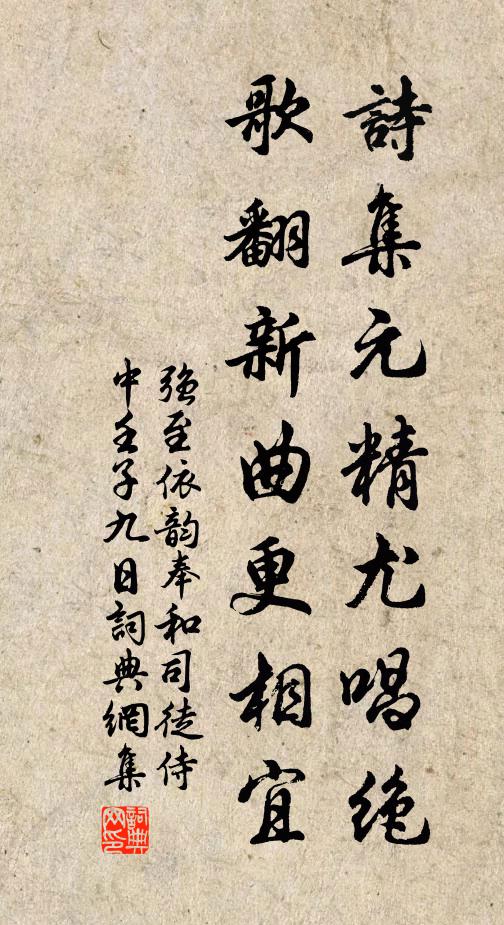 詩集元精尤唱绝
歌翻新曲更相宜
强至依韵奉和司徒侍
中壬子九日詞典網集
詞典
网印